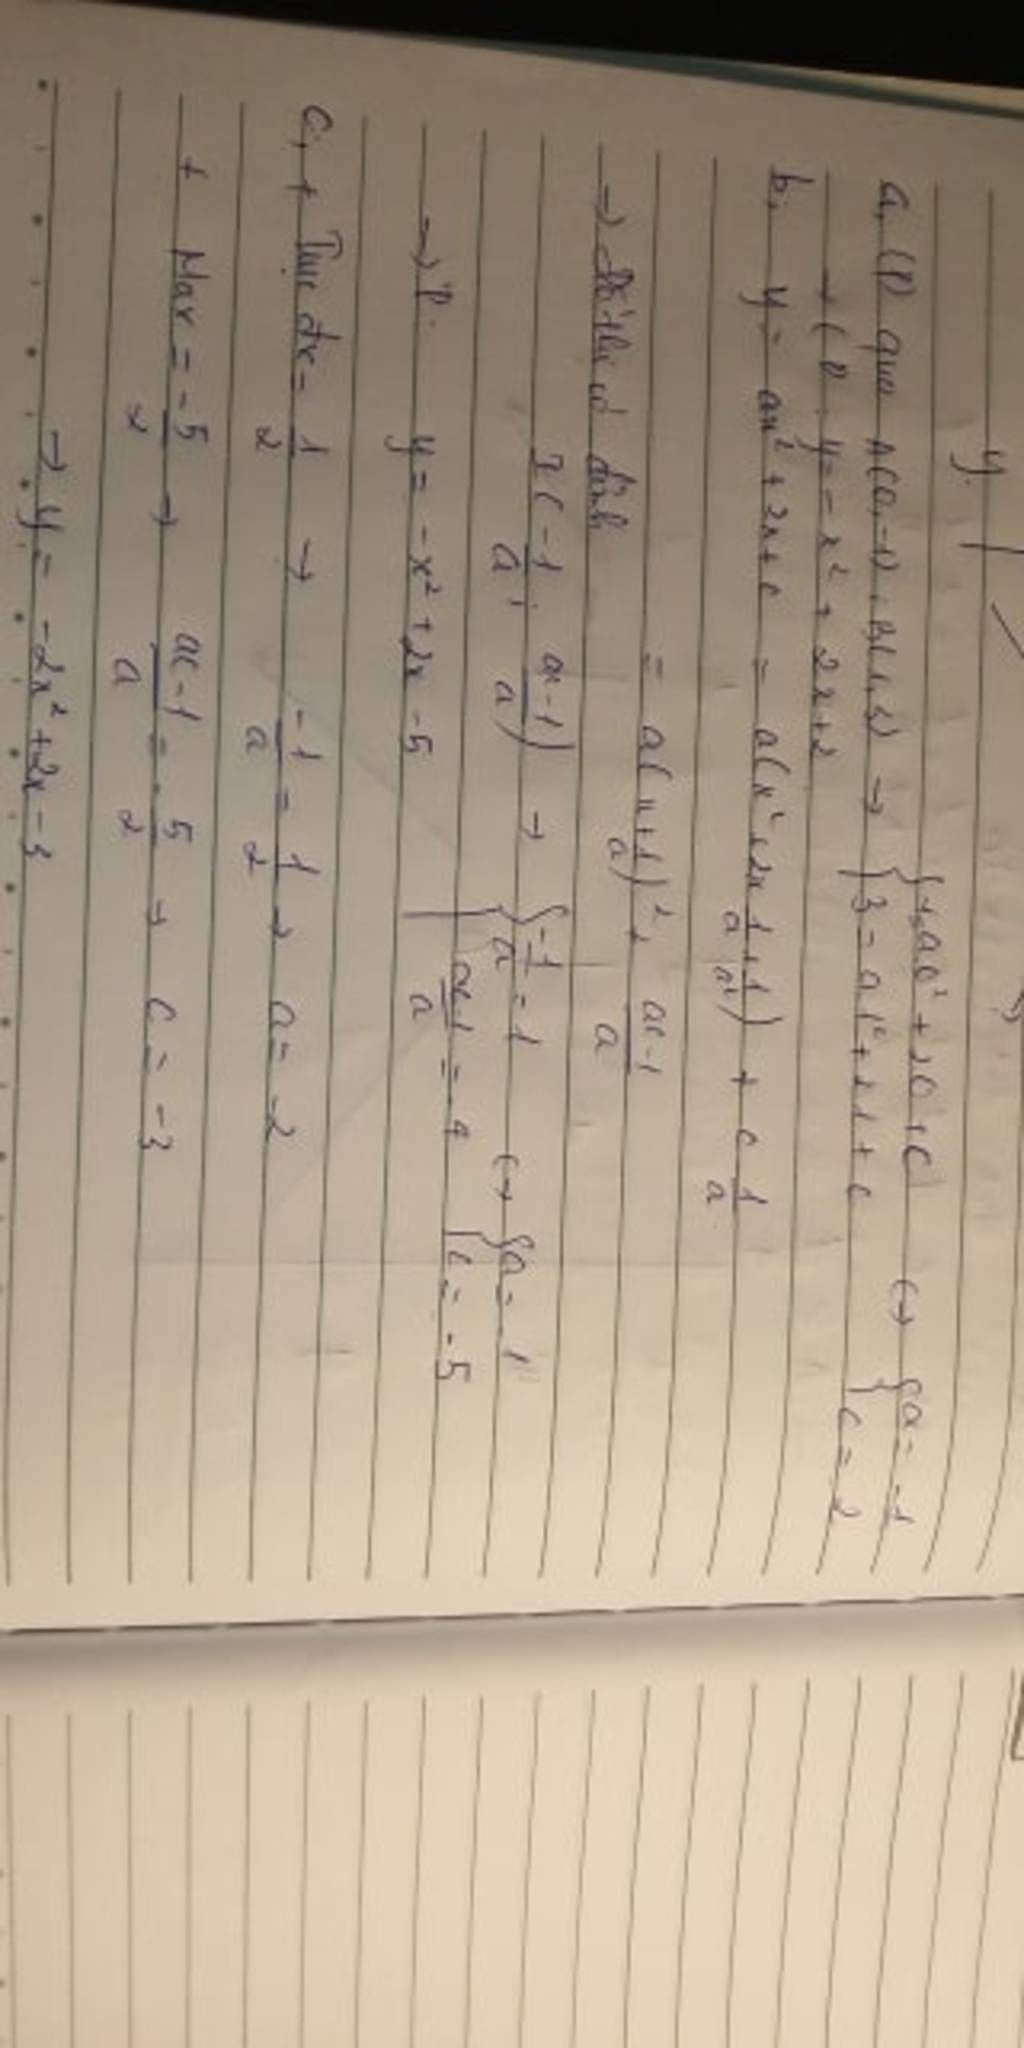 y
a, (P) qua A(0,-1), B(1,3) → { = a0² + 2.0 + c ↔ { a = -1
{ 3 = a1² + 2.1 + c { c = 2
→ (P): y = -x² + 2x + 2
b, y = ax² + 2x + c = a(x² + 2x 1/a + 1/a²) + c 1/a
= a(x + 1/a)² + ac-1/a
→ Đồ thị có đỉnh
I(-1/a; ac-1/a) → { -1/a = 1 ↔ { a = 1
{ ac-1/a = -4 { c = -5
→ P. y = -x² + 2x - 5
c, + Trục đx = 1/2 → -1/a = 1/2 → a = -2
+ Max = -5/2 → ac-1/a = -5/2 → c = -3
→ y = -2x² + 2x - 3